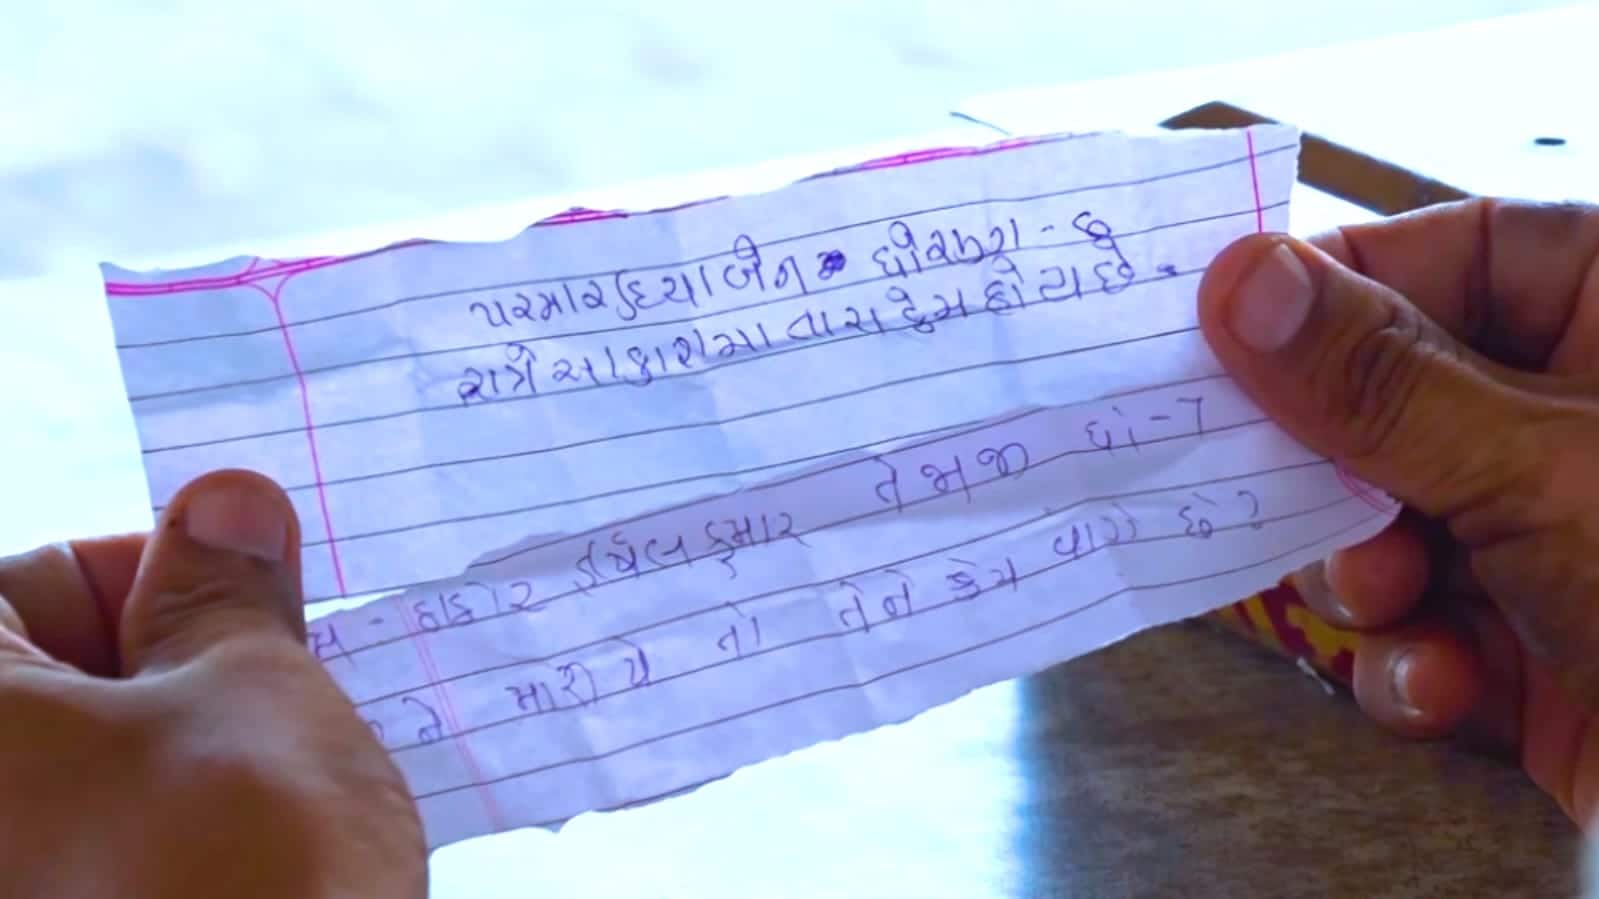 પરમાર દિયાબેન ધોરણ - ૬
રાત્રે આકાશમા તારા કેમ હોય છે.
ઠાકોર હર્ષલકુમાર તેજાજી ધો - 7
ને મારીયે તો તેને કેમ વાગે છે?